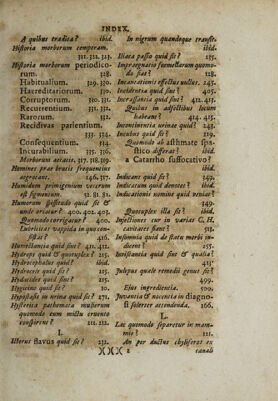 INDEX.
A quibus tradita? ibid.
Historia morborum temporum.
311. 312. 313.
Historia morborum periodico-
rum. 328.
Habitualium. 329. 330.
Haereditariorum. 330.
Corruptorum. 330. 331.
Recurrentium. 331. 332.
Rarorum. 332.
Recidivas parientium.
333. 334.
Consequentium. 334.
Incurabilium. 335. 336.
Morborum aetatis. 317. 318. 319.
Homines prae brutis frequentius
aegrotare. 146. 317.
Humidum primigenium vecerum
est figmentum. 52. 81. 82.
Humorum fistendo quid sit &
unde oriatur? 400. 402. 403.
Quomodo corrigatur? 400.
Euchricitas vappida in quo con-
sistat? 416.
Hurrellancia quid sint? 421. 422.
Hydrops quid & quotuplex? 215.
Hydrocephalus quid? ibid.
Hydrocele quid sit? 215.
Hydatides quid sint? 215.
Hygieine quid sit? 10.
Hypostasis in urina quid sit? 271.
Hysterica pathemata mulierum
quomodo cum mictu cruento
conspirent? 211. 212.
I.
Icterus flavus quid sit? 232.
In nigrum quandoque transit.
ibid.
Iliaca passio quid sit? 235.
Impraegnatio foemellarum quomo-
do fiat? 128.
Incancationis effectus nullus. 245.
Incidentia quid sint? 405.
Incrassantia quid sint? 412. 415.
Quibus in adfectibus locum
habeant? 414. 415.
Incontinentia urinae quid? 243.
Incubus quid sit? 219.
Quomodo ab asthmate spa-
stico differat? ibid.
a Catarrho suffocativo?
ibid.
Indicans quid sit? 349.
Indicatum quid denotet? ibid.
Indicationis nomine quid veniat?
349.
Quotuplex illa sit? ibid.
Injectiones cur in varias C. H.
cavitates fiant? 511.
Insomnia quid de statu morbi in-
dicent? 255.
Involvantia quid sint & qualia?
415.
Julepus quale remedii genus sit?
499.
Ejus ingredientia. 500.
Juvantia & nocentia in diagno-
si solerter attendenda. 166.
L.
Lac quomodo separetur in mam-
mis? 111.
An per ductus chyliferos ex
XXX 2 canali